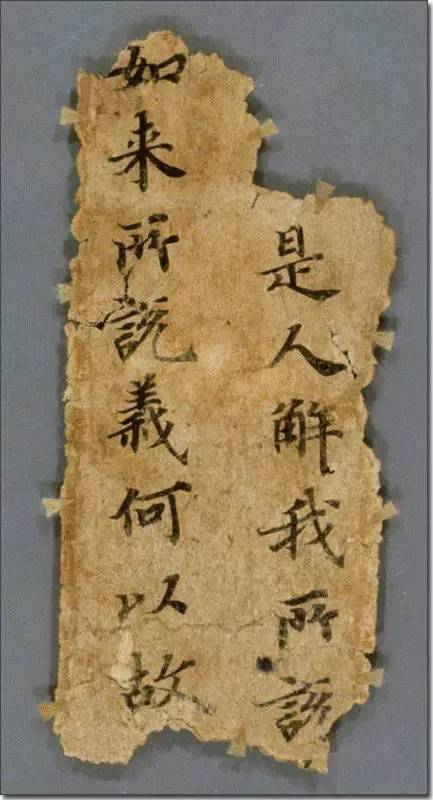 是人解我所説
如来所説義何以故